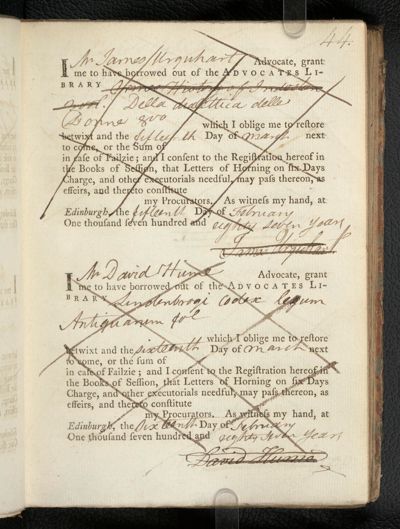 44.
I Mr James Urquhart Advocate, grant
me to have borrowed out of the ADVOCATES LI-
BRARY
Della dialettica delle
Donne 8vo which I oblige me to reſtore
betwixt and the fifteenth Day of March next
to come, or the Sum of
in caſe of Failzie; and I conſent to the Regiſtration hereof in
the Books of Seſſion, that Letters of Horning on ſix Days
Charge, and other executorials needful, may paſs thereon, as
effeirs, and thereto conſtitute
my Procurators. As witneſs my hand, at
Edinburgh, the fifteenth Day of February
One thouſand ſeven hundred and eighty seven years
James Urquhart
I Mr David Hume Advocate, grant
me to have borrowed out of the ADVOCATES LI-
BRARY Lindenbrogi Codex legum
Antiquarum fol
which I oblige me to reſtore
betwixt and the sixteenth Day of March next
to come, or the ſum of
in caſe of Failzie; and I conſent to the Regiſtration hereof in
the Books of Seſſion, that Letters of Horning on ſix Days
Charge, and other executorials needful, may paſs thereon, as
effeirs, and thereto conſtitute
my Procurators. As witneſs my hand, at
Edinburgh, the Sixteenth Day of February
One thouſand ſeven hundred and eighty seven years
David Hume